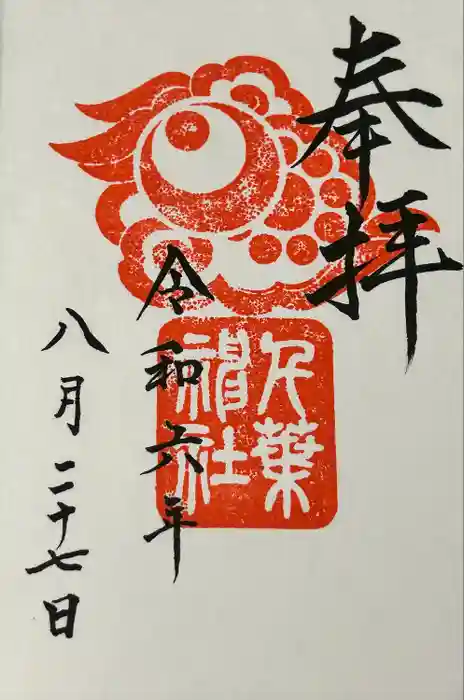 奉拝
葉
社
令和六年
八月二十七日